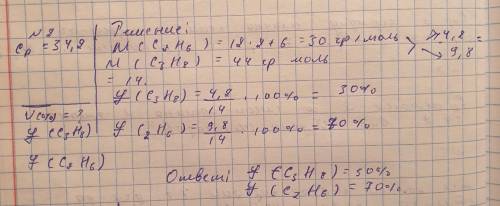 №2
Cp = 34,2
V(%) = ?
φ (C3H8)
φ (C2H6)
Решение:
M (C2H6) = 12 · 2 + 6 = 30 гр / моль
M (C3H8) = 44 гр моль
4,2 =
9,8
= 14.
φ (C3H8) = 4,2 / 14 · 100% = 30%
φ (2H6) = 9,8 / 14 · 100% = 70%
Ответ: φ (C3H8) = 30%
φ (C2H6) = 70%.